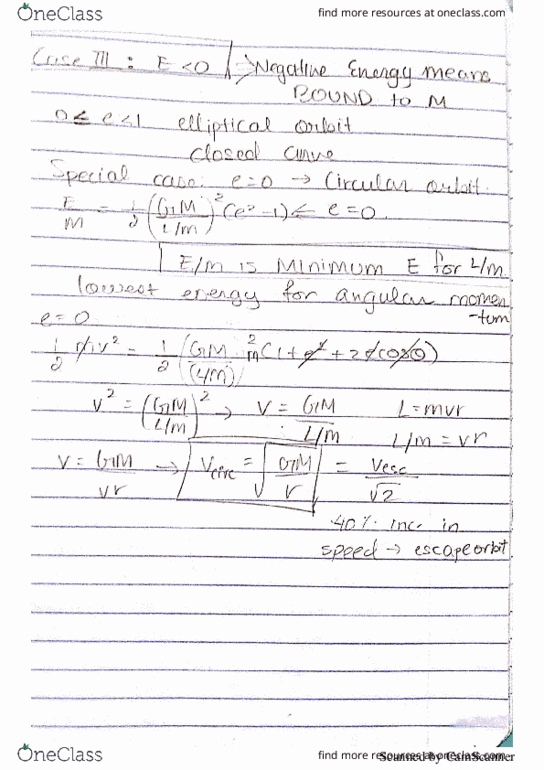 OneClass
find more resources at oneclass.com
Case III : E < 0 → Negative Energy means
BOUND to M
0 ≤ e < 1 elliptical orbit
closed curve
Special case: e=0 → Circular orbit.
E/M = 1/2 (GM/(L/m))² (e² - 1) ← e = 0
E/m is MINIMUM E for L/m
lowest energy for angular momen
-tum
e = 0
1/2 mv² = 1/2 (GM/(L/m))² m (1 + e² + 2e cos θ)
v² = (GM/(L/m))² → V = GM/(L/m) L = mvr
L/m = vr
V = GM/vr → Vcirc = √(GM/r) = Vesc/√2
40% inc. in
speed → escape orbit
OneClass
find more resources at oneclass.com
Scanned by CamScanner